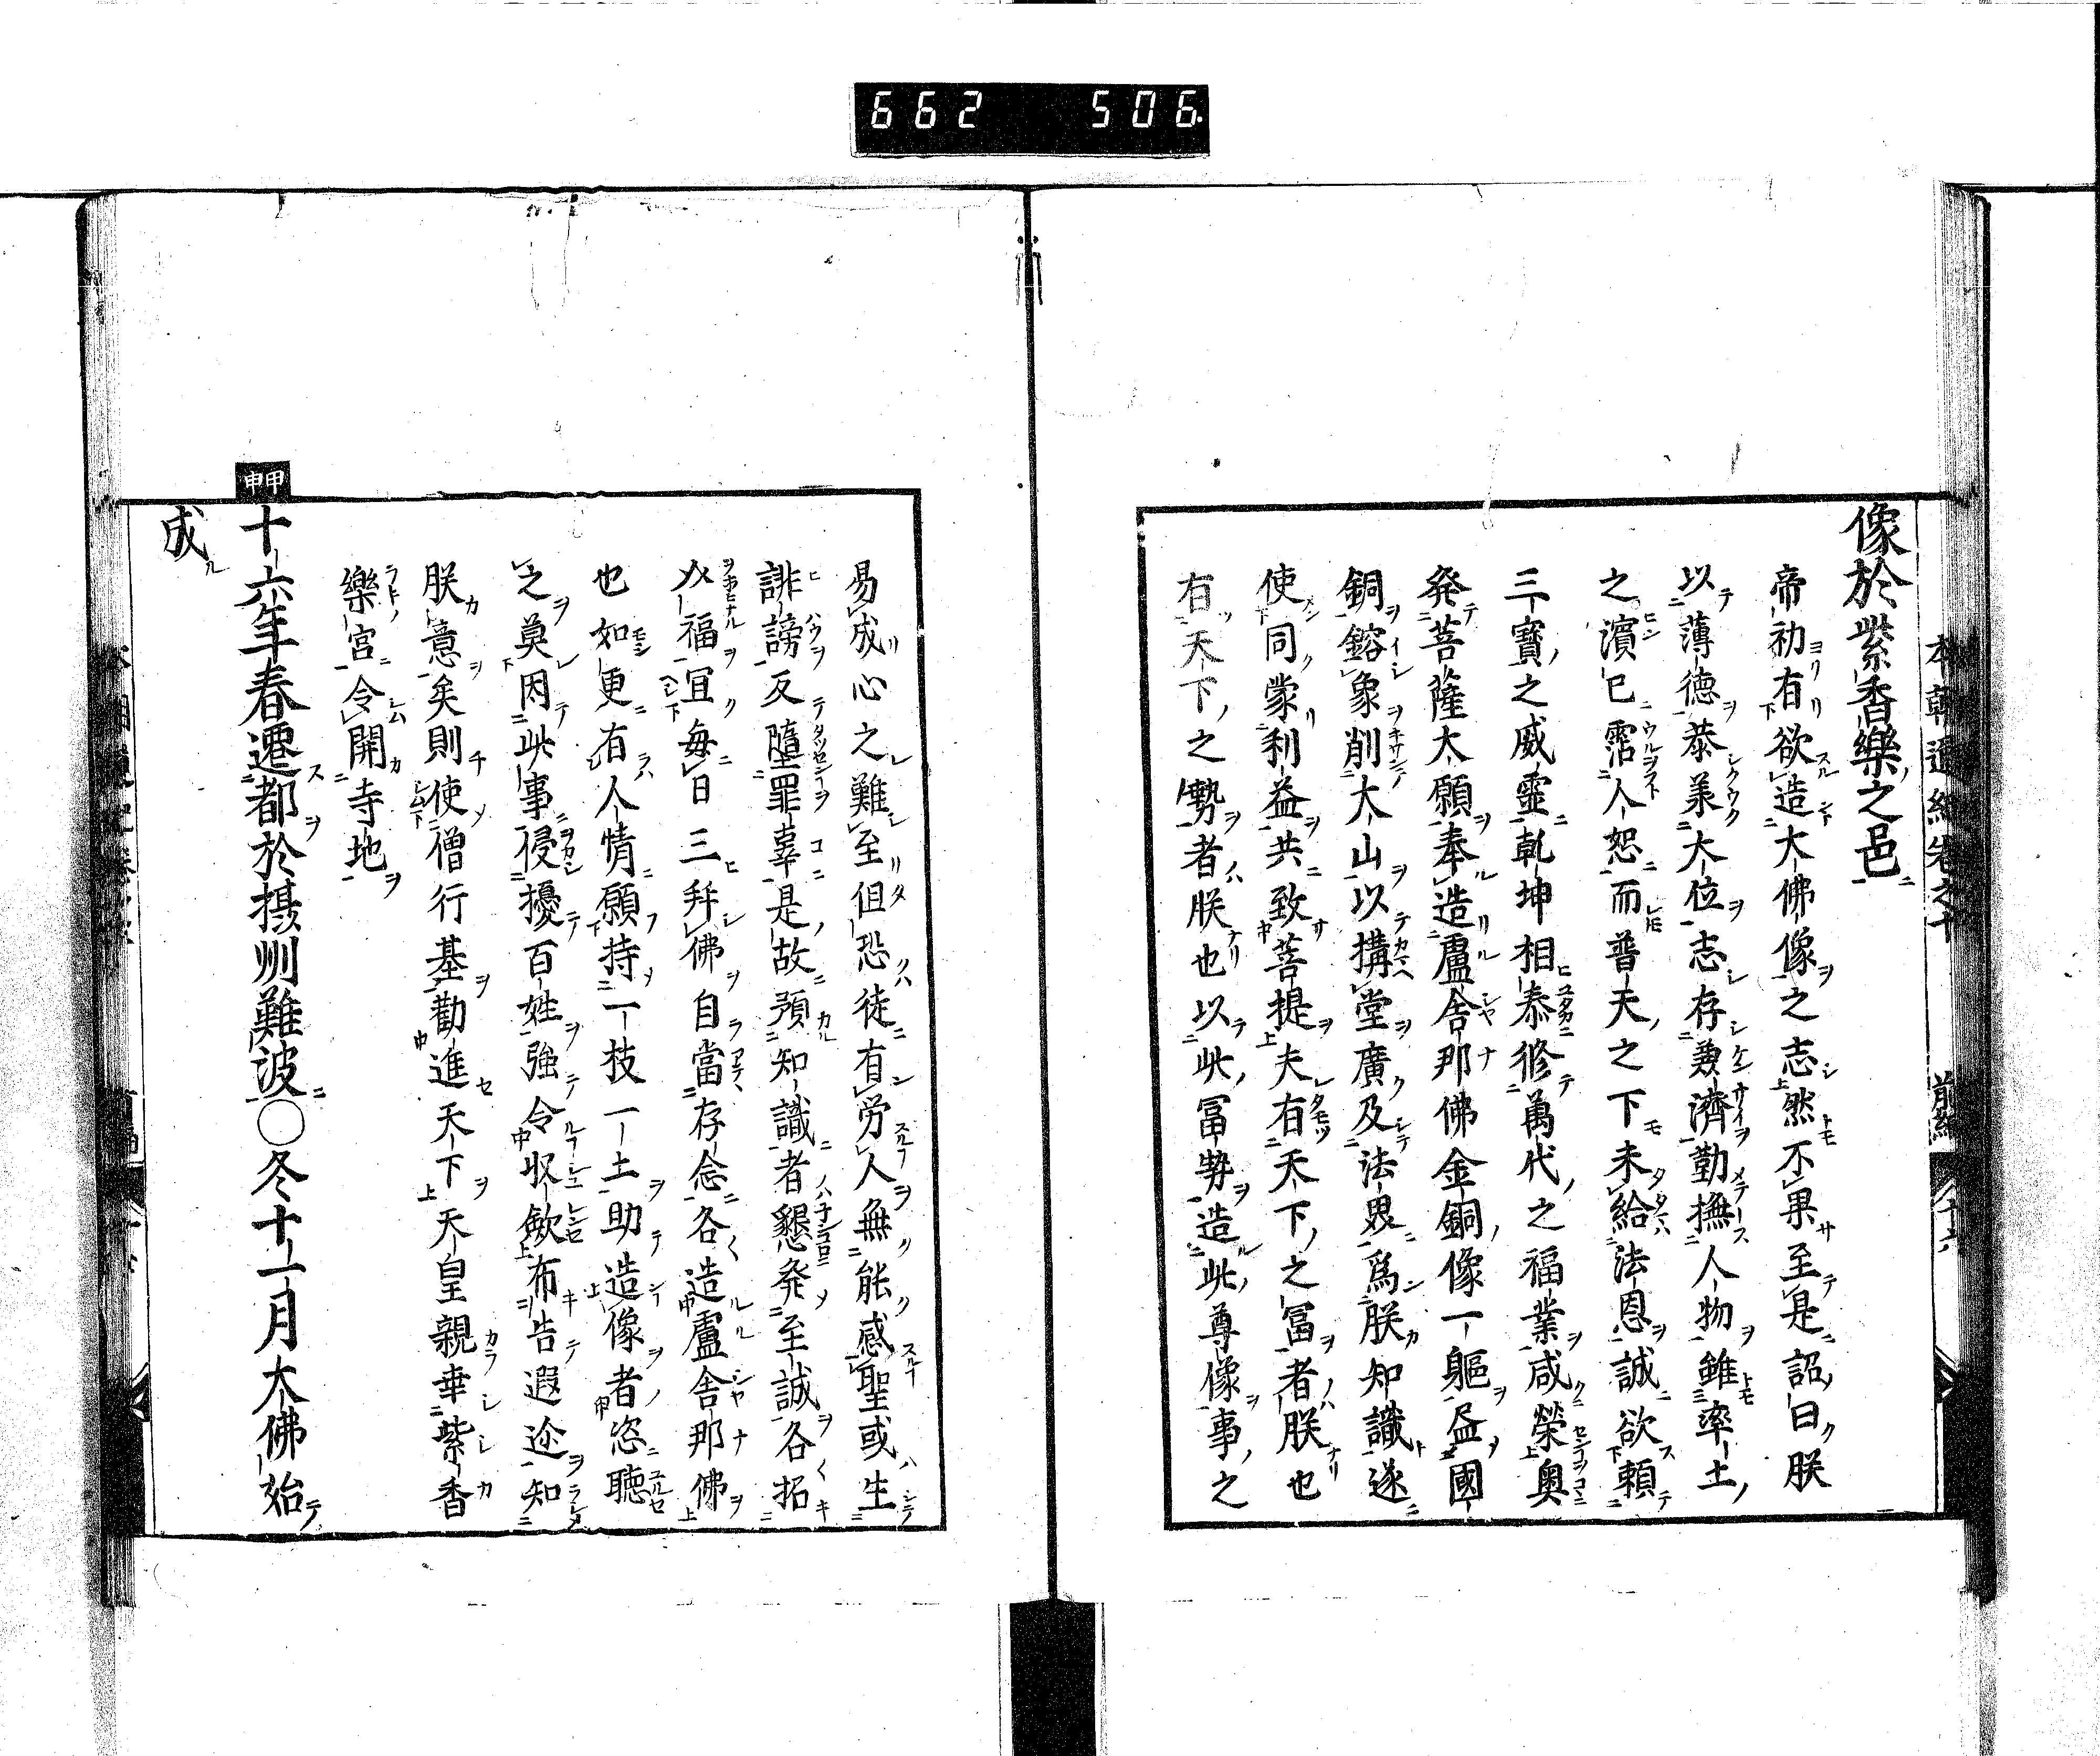 662 506
本朝通紀卷之十 前編 十六
像於紫香樂之邑
帝初有欲造大佛像之志然不果至是詔曰朕
以薄德恭承大位志存兼濟勤撫人物雖率土
之濱已霑仁恕而普天之下未給法恩誠欲賴
三寶之威靈乾坤相泰修萬代之福業咸榮奥
発菩薩大願奉造盧舎那佛金銅像一軀盡國
銅鎔象削大山以搆堂廣及法界爲朕知識遂
使同蒙利益共致菩提夫有天下之冨者朕也
有天下之勢者朕也以此冨勢造此尊像事之
易成心之難至但恐徒有労人無能感聖或生
誹謗反墮罪辜是故預知識者懇発至誠各招
大福冝毎日三拜佛自當存念各造盧舎那佛
也如更有人情願持一枝一土助造像者恣聴
之莫因此事侵擾百姓強令収歛布告遐迩知
朕意矣則使僧行基勸進天下天皇親幸紫香
樂宮令開寺地
甲申
十六年春遷都於摂州難波〇冬十一月大佛始
成